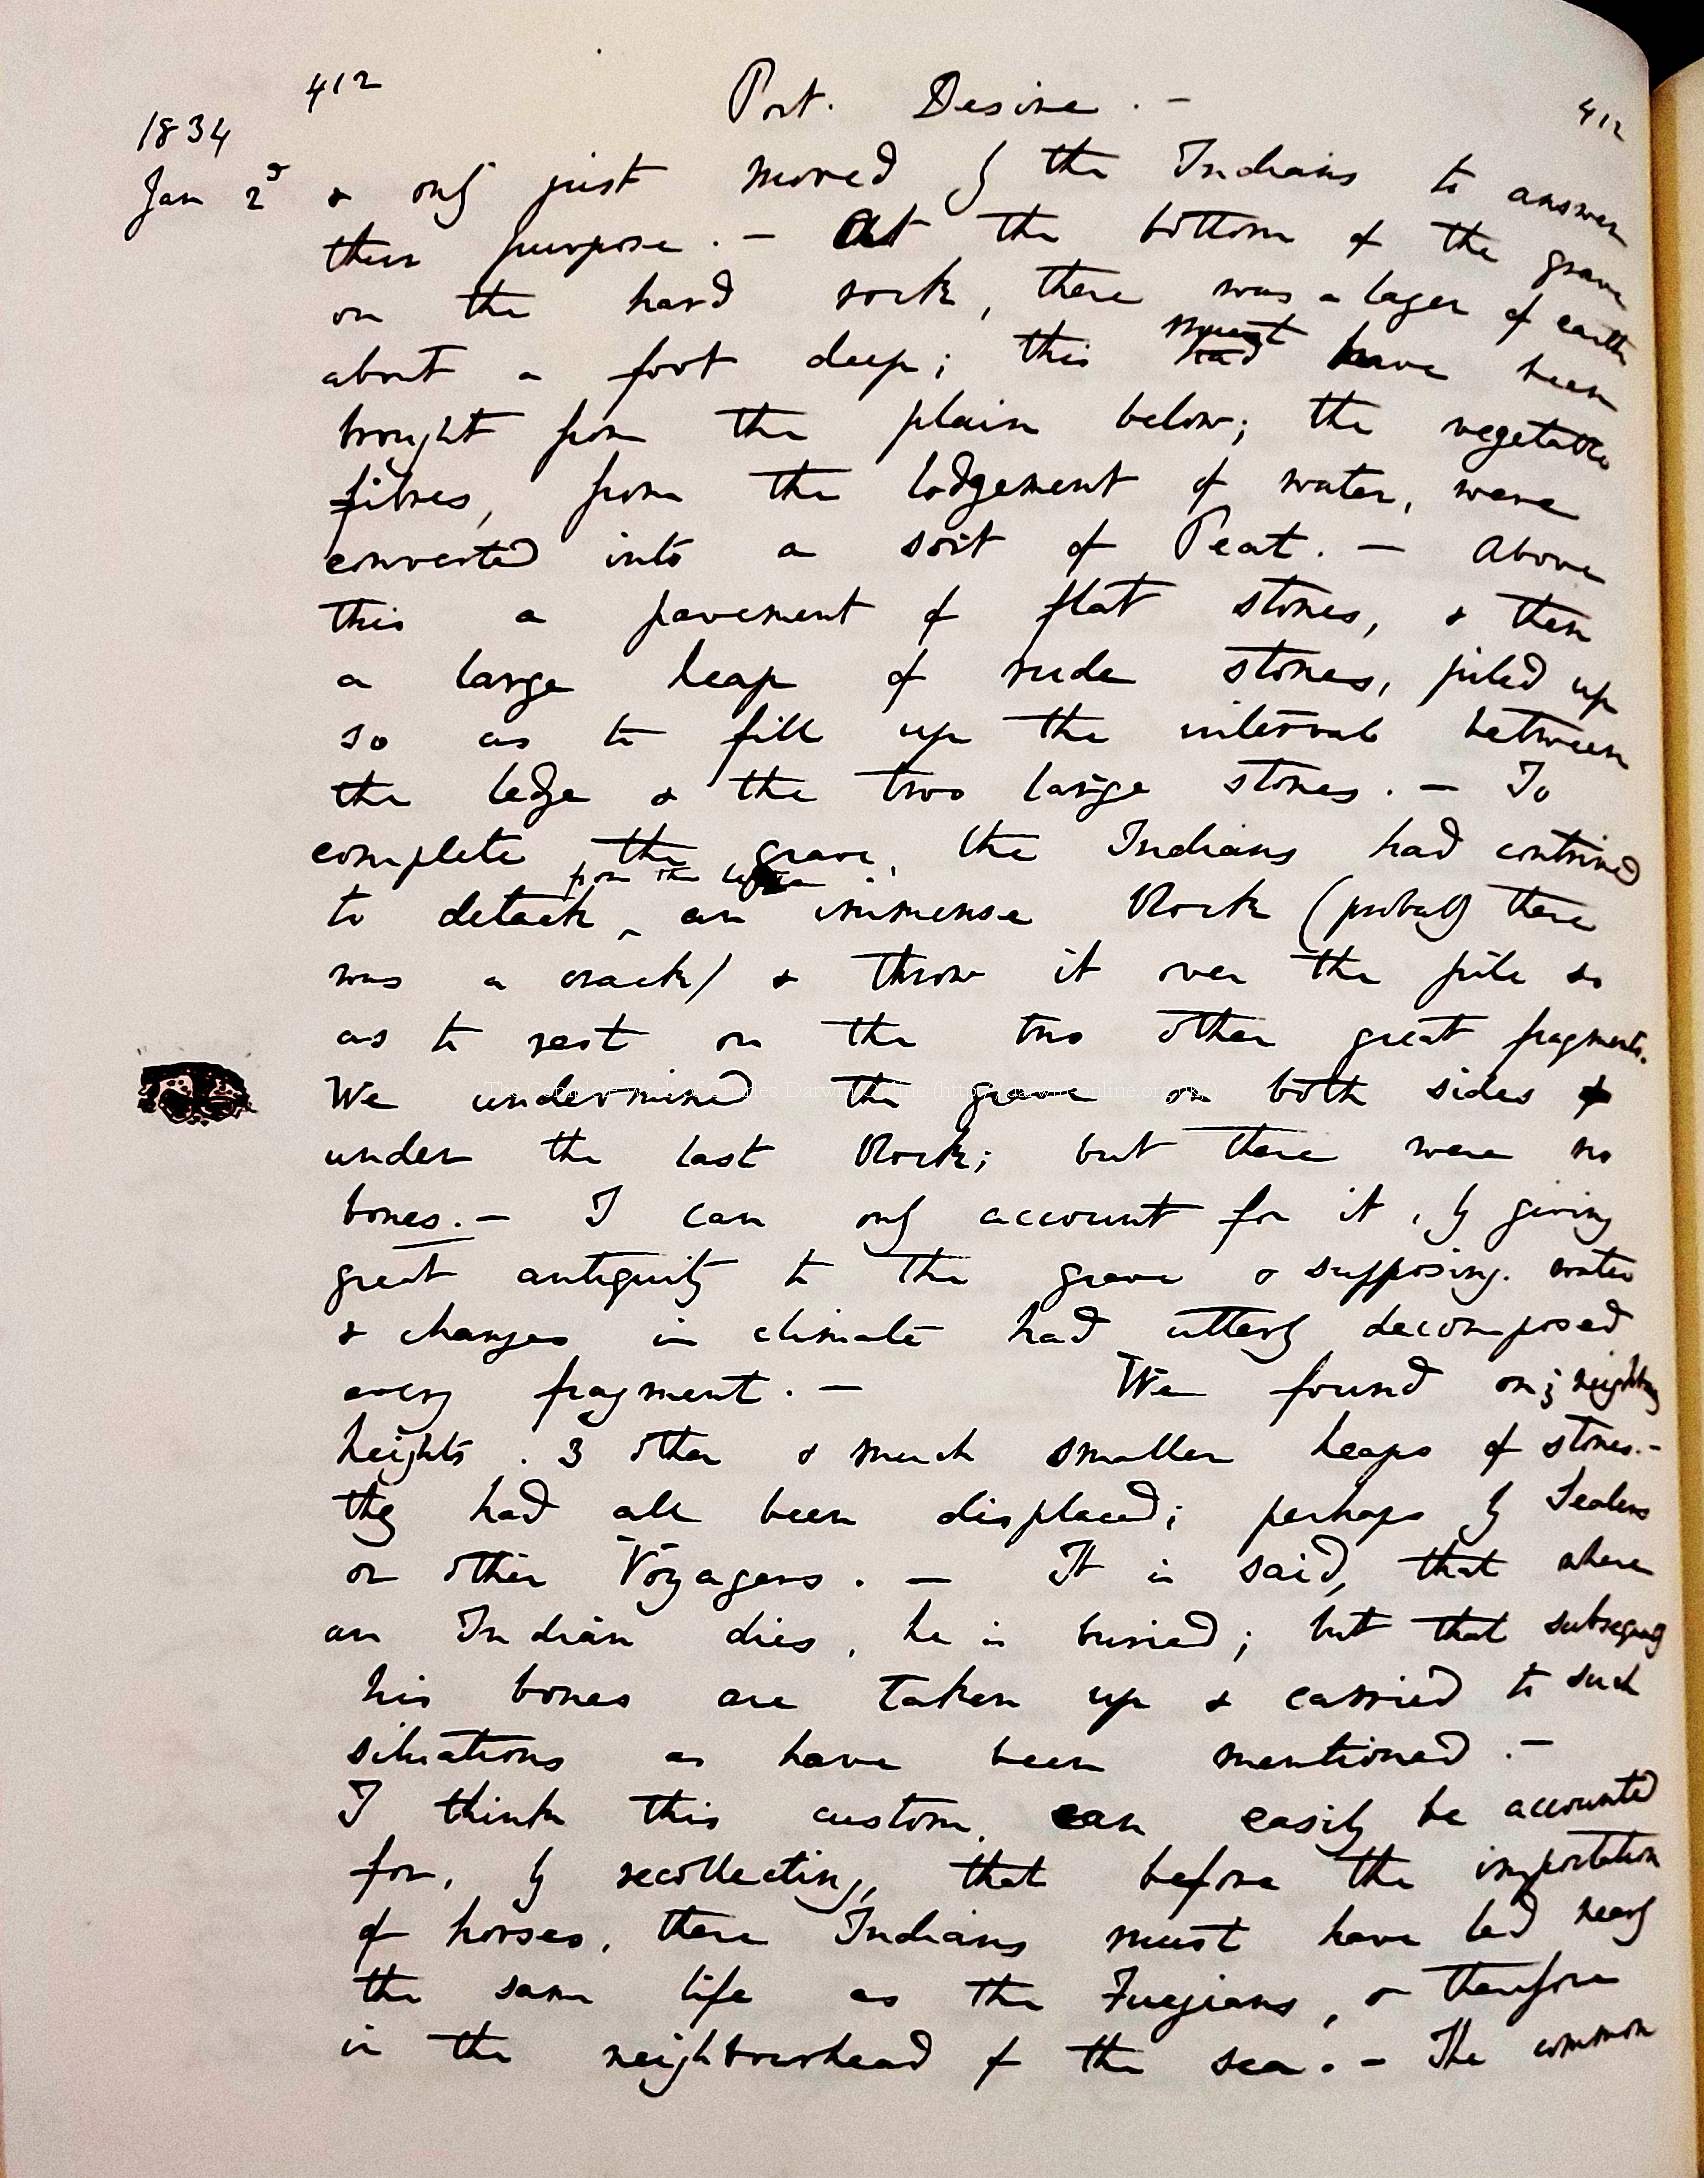 412 Port. Desire. — 412
1834
Jan 2d & only just moved by the Indians to answer
their purpose. — At the bottom of the grave
on the hard rock, there was a layer of earth
about a foot deep; this must had have been
brought from the plain below; the vegetable
fibres, from the lodgement of water, were
converted into a sort of Peat. — Above
this a pavement of flat stones, & then
a large heap of rude stones, piled up
so as to fill up the interval between
the ledge & the two large stones. — To
complete the grave, the Indians had contrived
from the ledge
to detach ^ an immense Rock (probably there
was a crack) & throw it over the pile so
as to rest on the two other great fragments.
We undermined the grave on both sides &
under the last Rock; but there were no
bones. — I can only account for it, by giving
great antiquity to the grave & supposing water
& changes in climate had utterly decomposed
every fragment. — We found on neighbring
heights. 3 other & much smaller heaps of stones. —
they had all been displaced; perhaps by Sealers
or other Voyagers. — It is said, that where
an Indian dies, he is buried; but that subsequently
his bones are taken up & carried to such
situations as have been mentioned. —
I think this custom can easily be accounted
for, by recollecting, that before the importation
of horses, these Indians must have led nearly
the same life as the Fuegians, & therefore
in the neighbourhead of the sea. — The common